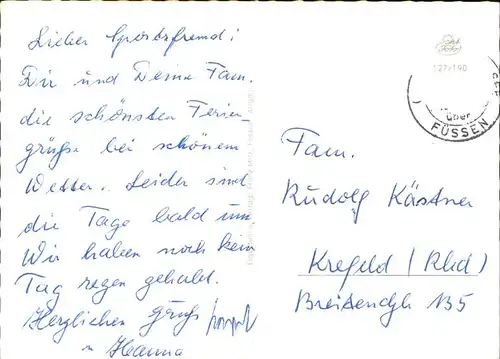 Lieber Sportsfreund!
Dir und Deine Fam.
die schönsten Ferien-
grüße bei schönem
Wetter. Leider sind
die Tage bald um
Wir haben noch kein
Tag regen gehabt.
Herzlichen Gruß
u Hanna
127/190
über
FÜSSEN
Fam.
Rudolf Kästner
Krefeld (Rhld)
135